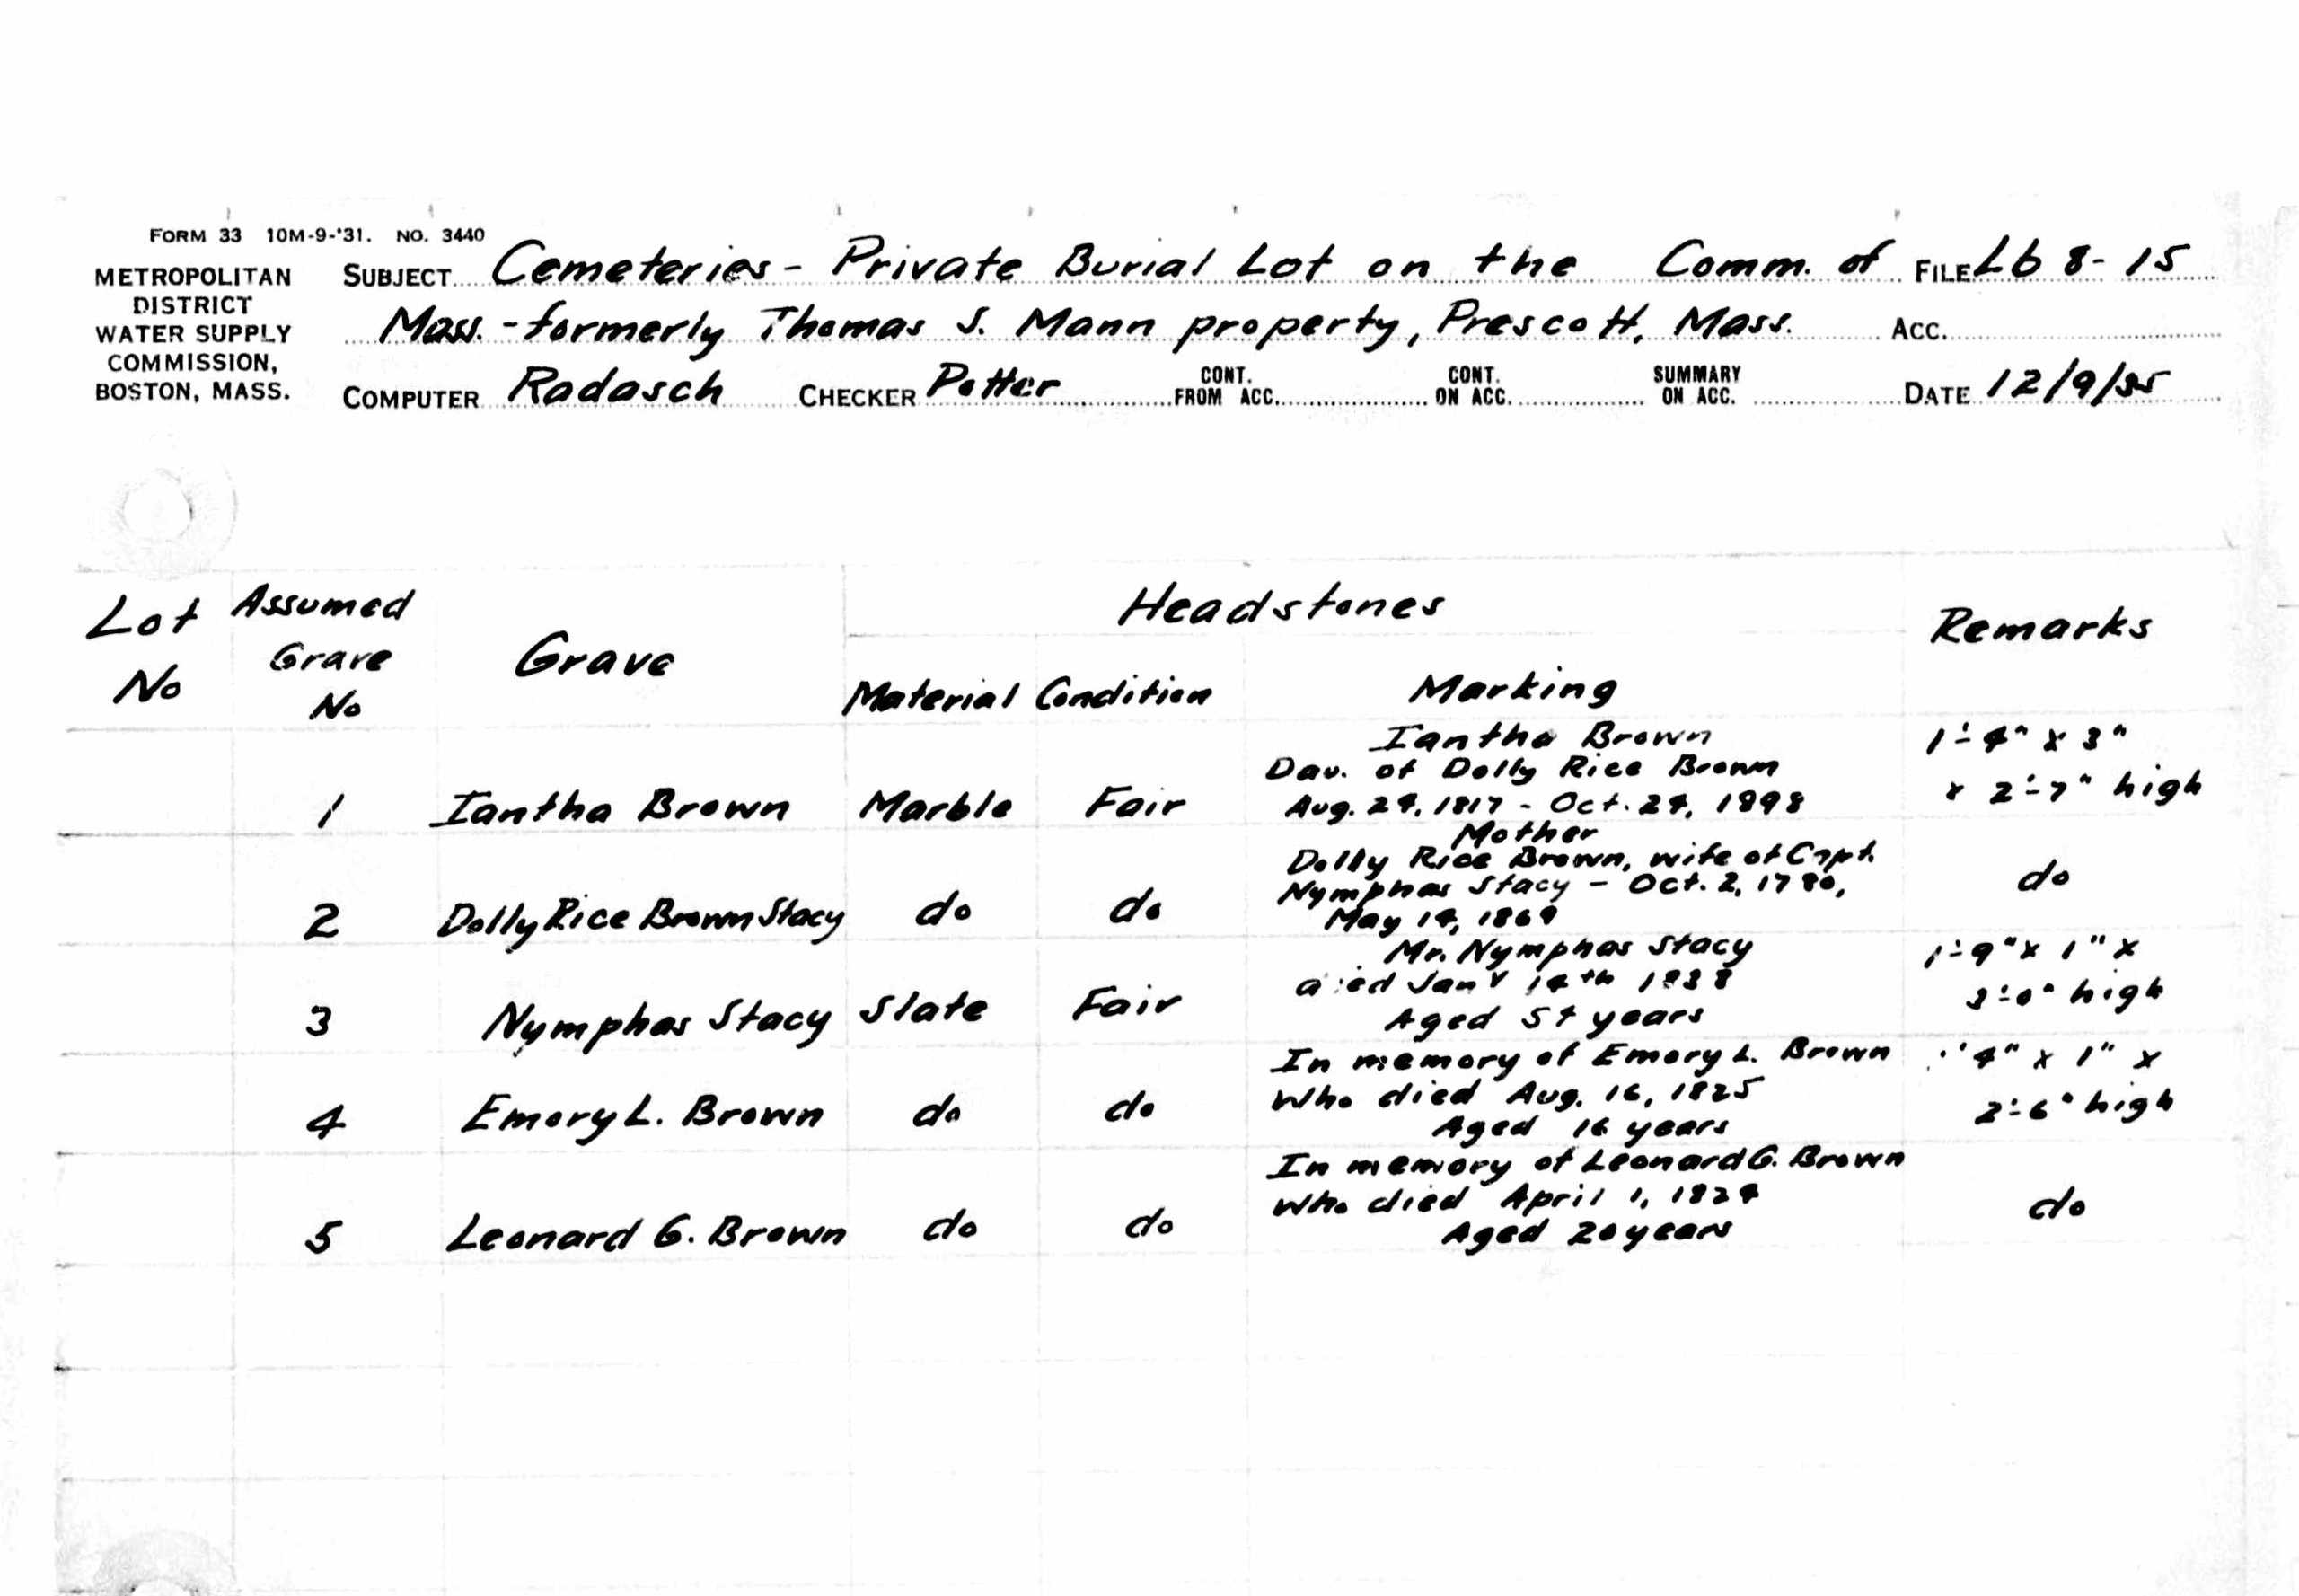 FORM 33 10M-9-'31. NO. 3440
METROPOLITAN
DISTRICT
WATER SUPPLY
COMMISSION,
BOSTON, MASS.
SUBJECT Cemeteries - Private Burial Lot on the Comm. of FILE Lb 8-15
Mass. - formerly Thomas S. Mann property, Prescott, Mass. ACC.
COMPUTER Radasch CHECKER Potter CONT. FROM ACC. CONT. ON ACC. SUMMARY ON ACC. DATE 12/9/35
Lot No
Assumed Grave No
Grave
Headstones
Material Condition Marking
Remarks
1 Iantha Brown Marble Fair
Iantha Brown
Dau. of Dolly Rice Brown
Aug. 24, 1817 - Oct. 24, 1898
1'-4" x 3"
x 2'-7" high
2 Dolly Rice Brown Stacy do do
Mother
Dolly Rice Brown, wife of Capt.
Nymphas Stacy - Oct. 2, 1780,
May 14, 1869
do
3 Nymphas Stacy Slate Fair
Mr. Nymphas Stacy
died Jany 14th 1838
Aged 57 years
1'-9" x 1" x
3'-0" high
4 Emory L. Brown do do
In memory of Emory L. Brown
Who died Aug. 16, 1825
Aged 16 years
4" x 1" x
2'-6" high
5 Leonard G. Brown do do
In memory of Leonard G. Brown
Who died April 1, 1824
Aged 20 years
do